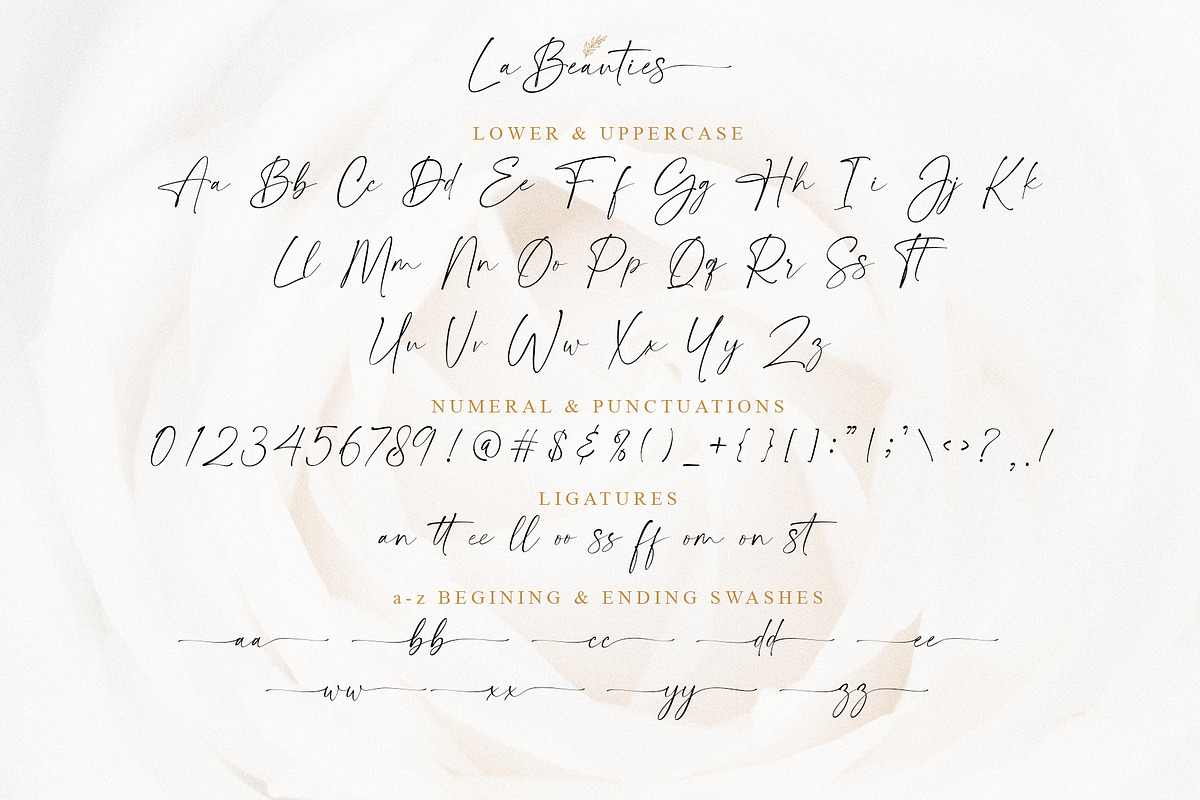 La Beauties
LOWER & UPPERCASE
Aa Bb Cc Dd Ee Ff Gg Hh Ii Jj Kk
Ll Mm Nn Oo Pp Qq Rr Ss Tt
Uu Vv Ww Xx Yy Zz
NUMERAL & PUNCTUATIONS
0123456789!@#$&%()_+{}[]:"|;'\<>?,./
LIGATURES
an tt ee ll oo ss ff om on st
a-z BEGINING & ENDING SWASHES
aa bb cc dd ee
ww xx yy zz